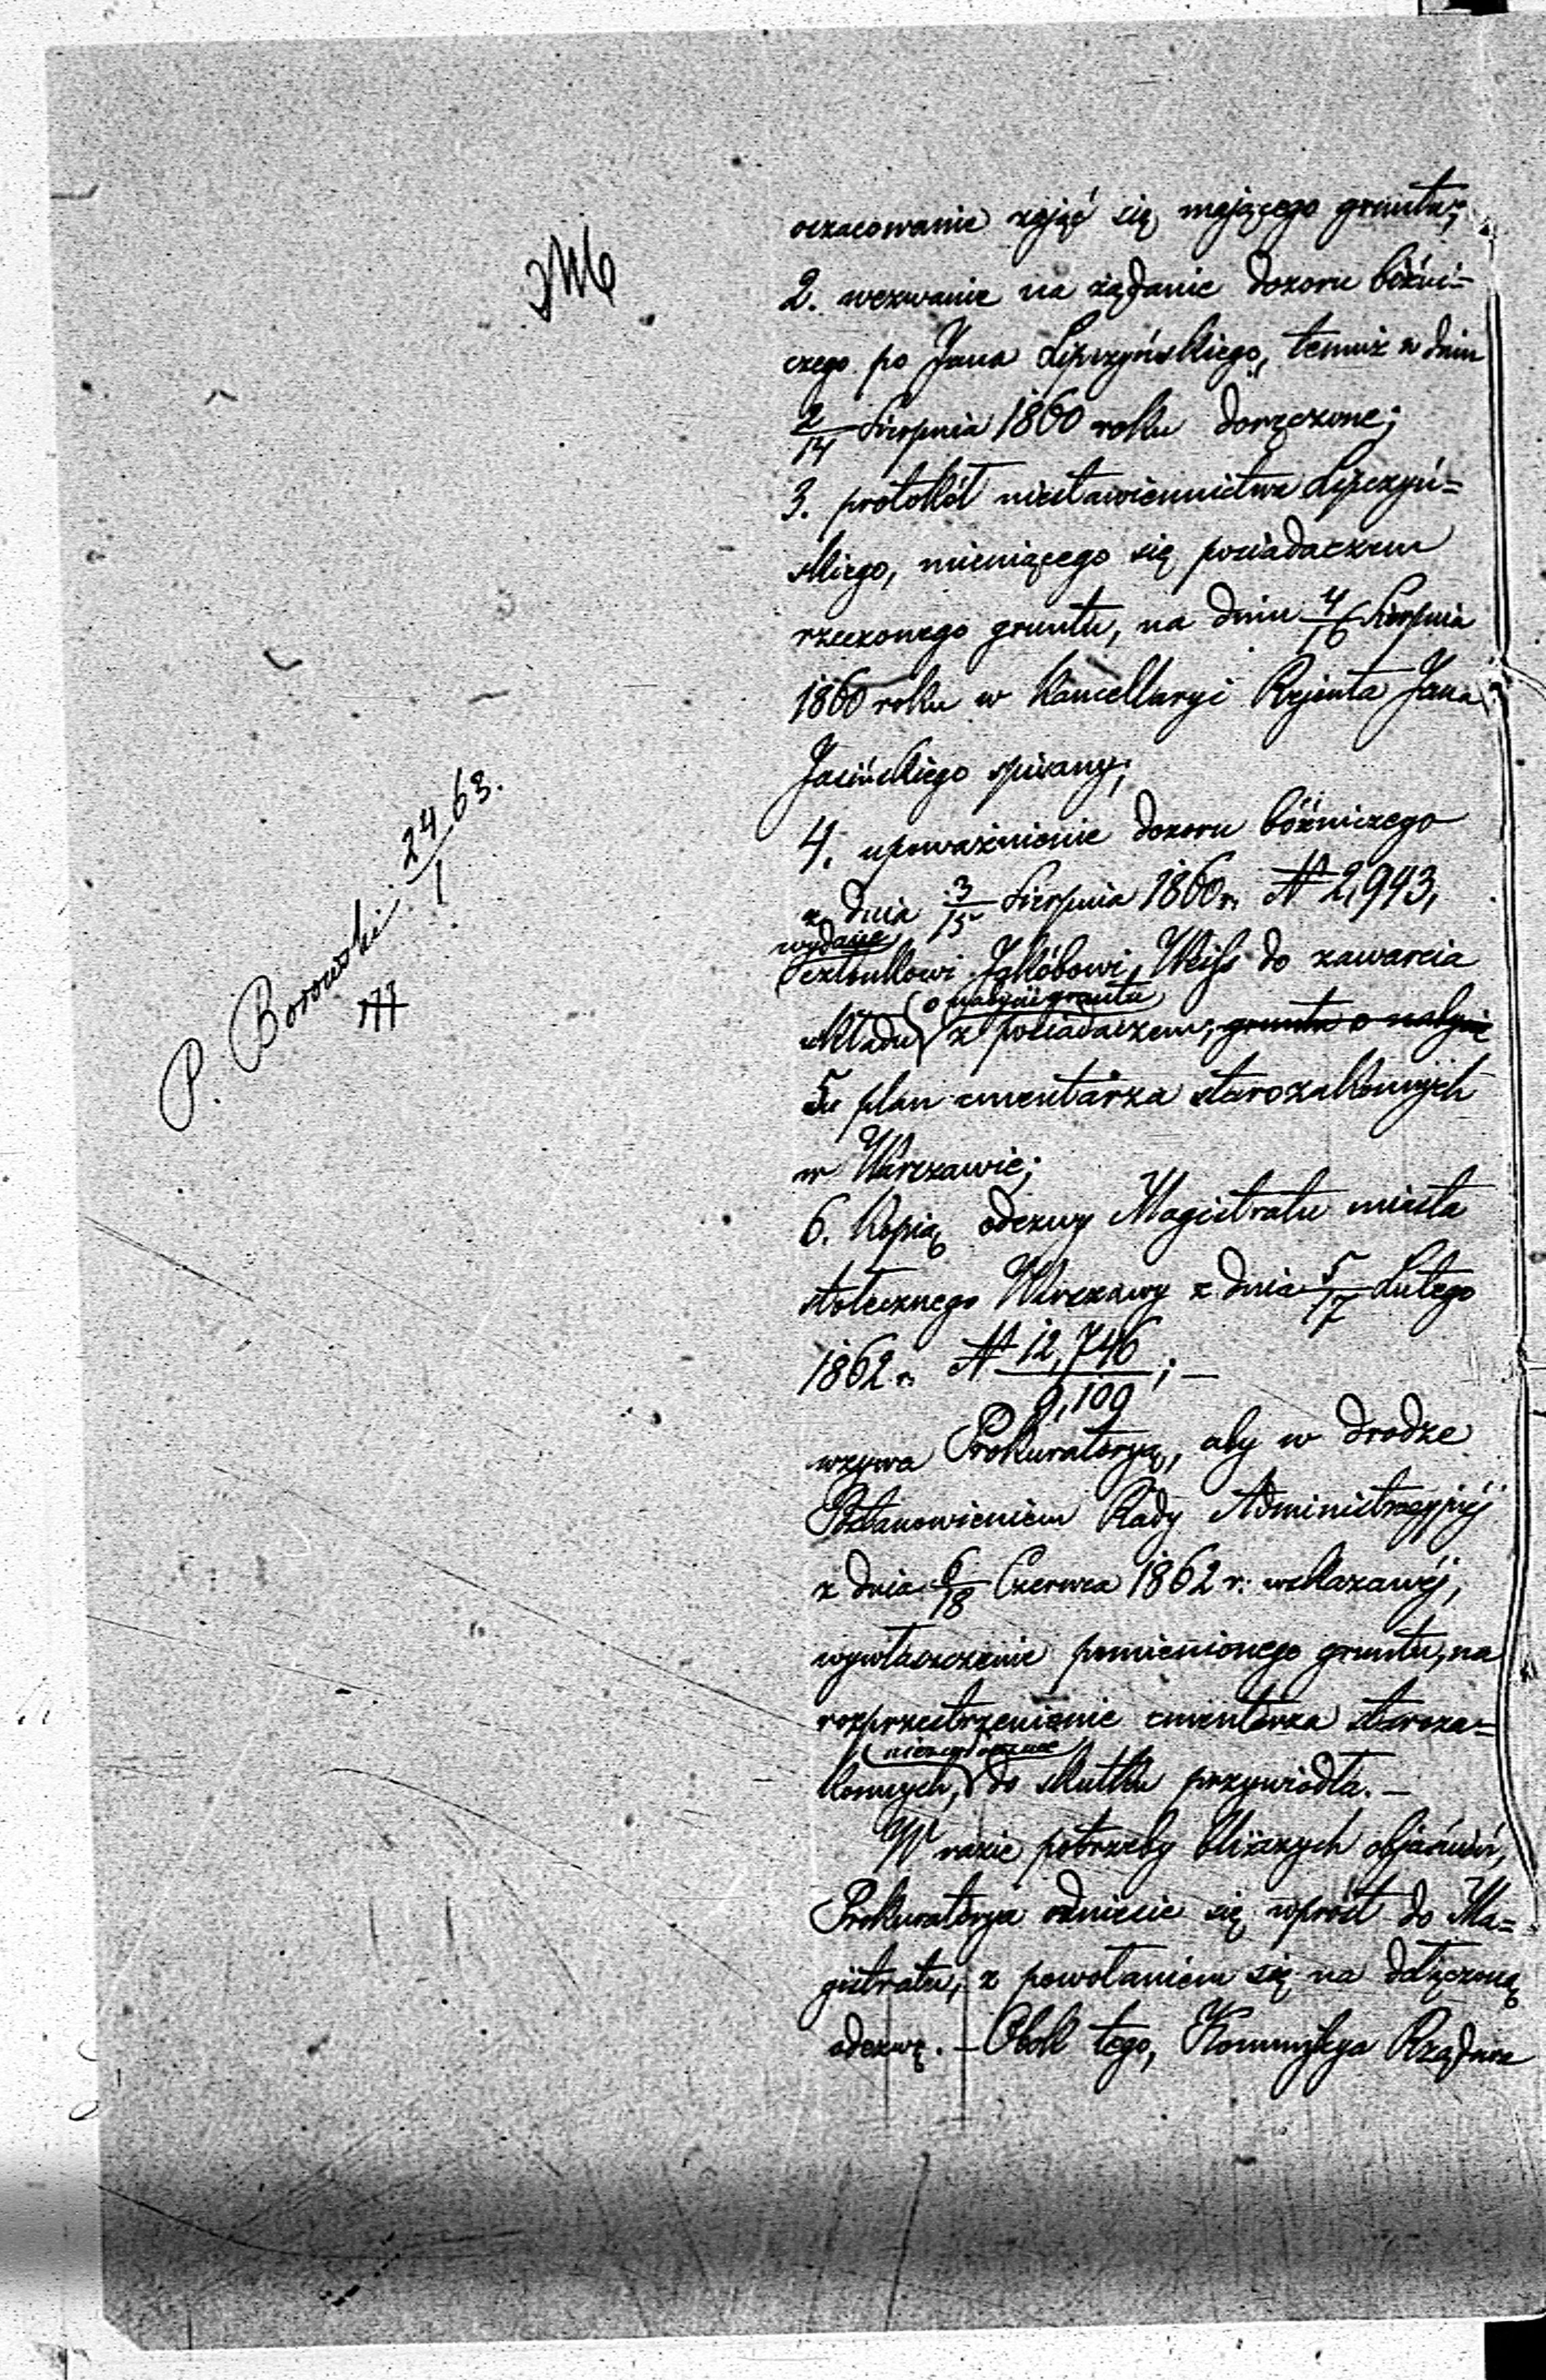 oszacowanie zająć się mającego gruntu;
2. wezwanie na żądanie dozoru bóźni=
czego po Jana Lipczyńskiego, temuż w dniu
2/14 Sierpnia 1860 roku doręczone;
3. protokół niestawiennictwa Lipczyń=
skiego, mieniącego się posiadaczem
rzeczonego gruntu, na dniu 4/16 Sierpnia
1860 roku w Kancellaryi Rejenta Jana
Jasińskiego spisany;
4. upoważnienie dozoru bóźniczego
z dnia 3/15 Sierpnia 1860 r. N 2,943,
wydane
członkowi Jakóbowi Weiss do zawarcia
o nabycie gruntu
układu z posiadaczem, gruntu o nabycie
5. plan cmentarza starozakonnych
w Warszawie;
6. Kopią odezwy Magistratu miasta
stołecznego Warszawy z dnia 5/17 Lutego
1862 r. N 12,746/9,109; —
wzywa Prokuratoryą, aby w drodze
Postanowieniem Rady Administracyjnéj
z dnia 6/18 Czerwca 1862 r. wskazanéj,
wywłaszczenie pomienionego gruntu, na
rozprzestrzenienie cmentarza staroza=
niezwłocznie
konnych, do skutku przywiodła. —
W razie potrzeby bliższych objaśnień,
Prokuratorya odniesie się wprost do Ma=
gistratu, z powołaniem się na dołączoną
odezwę. — Obok tego, Kommissya Rządowa
P. Borowski 24/1 63.